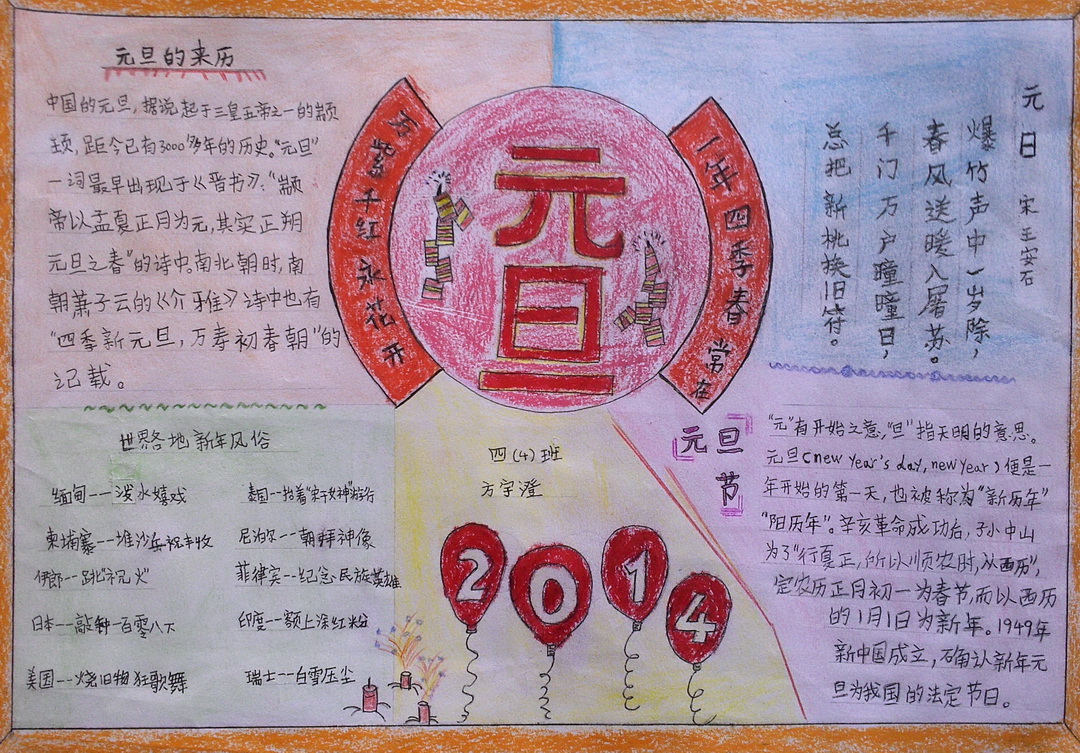 元旦的来历
中国的元旦，据说起于三皇五帝之一的颛
顼，距今已有3000多年的历史。“元旦”
一词最早出现于《晋书》：“颛
帝以孟夏正月为元，其实正朔
元旦之春”的诗中。南北朝时，南
朝萧子云的《介雅》诗中也有
“四季新元旦，万寿初春朝”的
记载。
万紫千红永花开
元
旦
一年四季春常在
元日 宋 王安石
爆竹声中一岁除，
春风送暖入屠苏。
千门万户曈曈日，
总把新桃换旧符。
世界各地新年风俗
缅甸--泼水嬉戏
泰国--抬着“宋干女神”游行
柬埔寨--堆沙丘祝丰收
尼泊尔--朝拜神像
伊郎--跳“祝火”
菲律宾--纪念民族英雄
日本--敲钟一百零八下
印度--额上涂红粉
美国--烧旧物狂歌舞
瑞士--白雪压尘
四(4)班
方宇澄
2014
元旦节
“元”有开始之意，“旦”指天明的意思。
元旦(new Year's day, new year)便是一
年开始的第一天，也被称为“新历年”
“阳历年”。辛亥革命成功后，孙中山
为了“行夏正，所以顺农时，从西历”，
定农历正月初一为春节，而以西历
的1月1日为新年。1949年
新中国成立，确认新年元
旦为我国的法定节日。